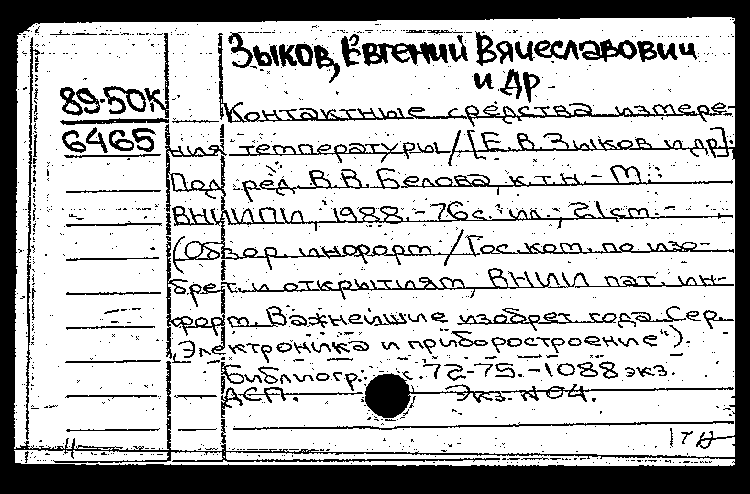 Зыков, Евгений Вячеславович
и др.
89-50К
6465
Контактные средства измере-
ния температуры / [Е. В. Зыков и др];
Под ред. В. В. Белова, к.т.н. - М.:
ВНИИПИ, 1988. - 76 с. ил.; 21 cm. -
(Обзор. информ. / Гос. ком. по изо-
брет. и открытиям, ВНИИ пат. ин-
форм. Важнейшие изобрет. года Сер.
"Электроника и приборостроение").
Библиогр.: с. 72-75. - 1088 экз.
ДСП. Экз. N 04.